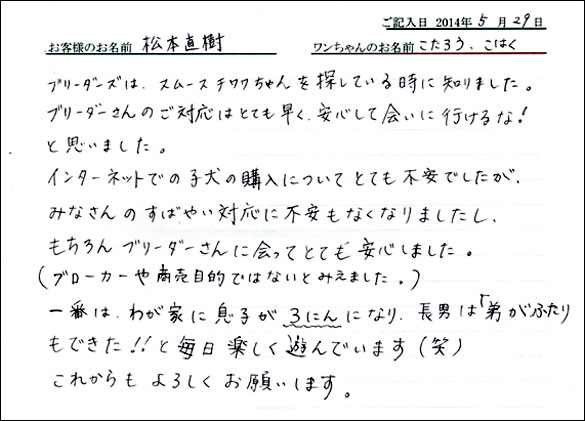 ご記入日 2014年 5月 29日
お客様のお名前 松本直樹 ワンちゃんのお名前 こたろう、こはく
ブリーダーズは、スムースチワワちゃんを探している時に知りました。
ブリーダーさんのご対応はとても早く、安心して会いに行けるな!
と思いました。
インターネットでの子犬の購入についてとても不安でしたが、
みなさんのすばやい対応に不安もなくなりましたし、
もちろんブリーダーさんに会ってとても安心しました。
(ブローカーや商売目的ではないとみえました。)
一番は、わが家に息子が3にんになり、長男は「弟がふたり
もできた!!と毎日楽しく遊んでいます(笑)
これからもよろしくお願いします。